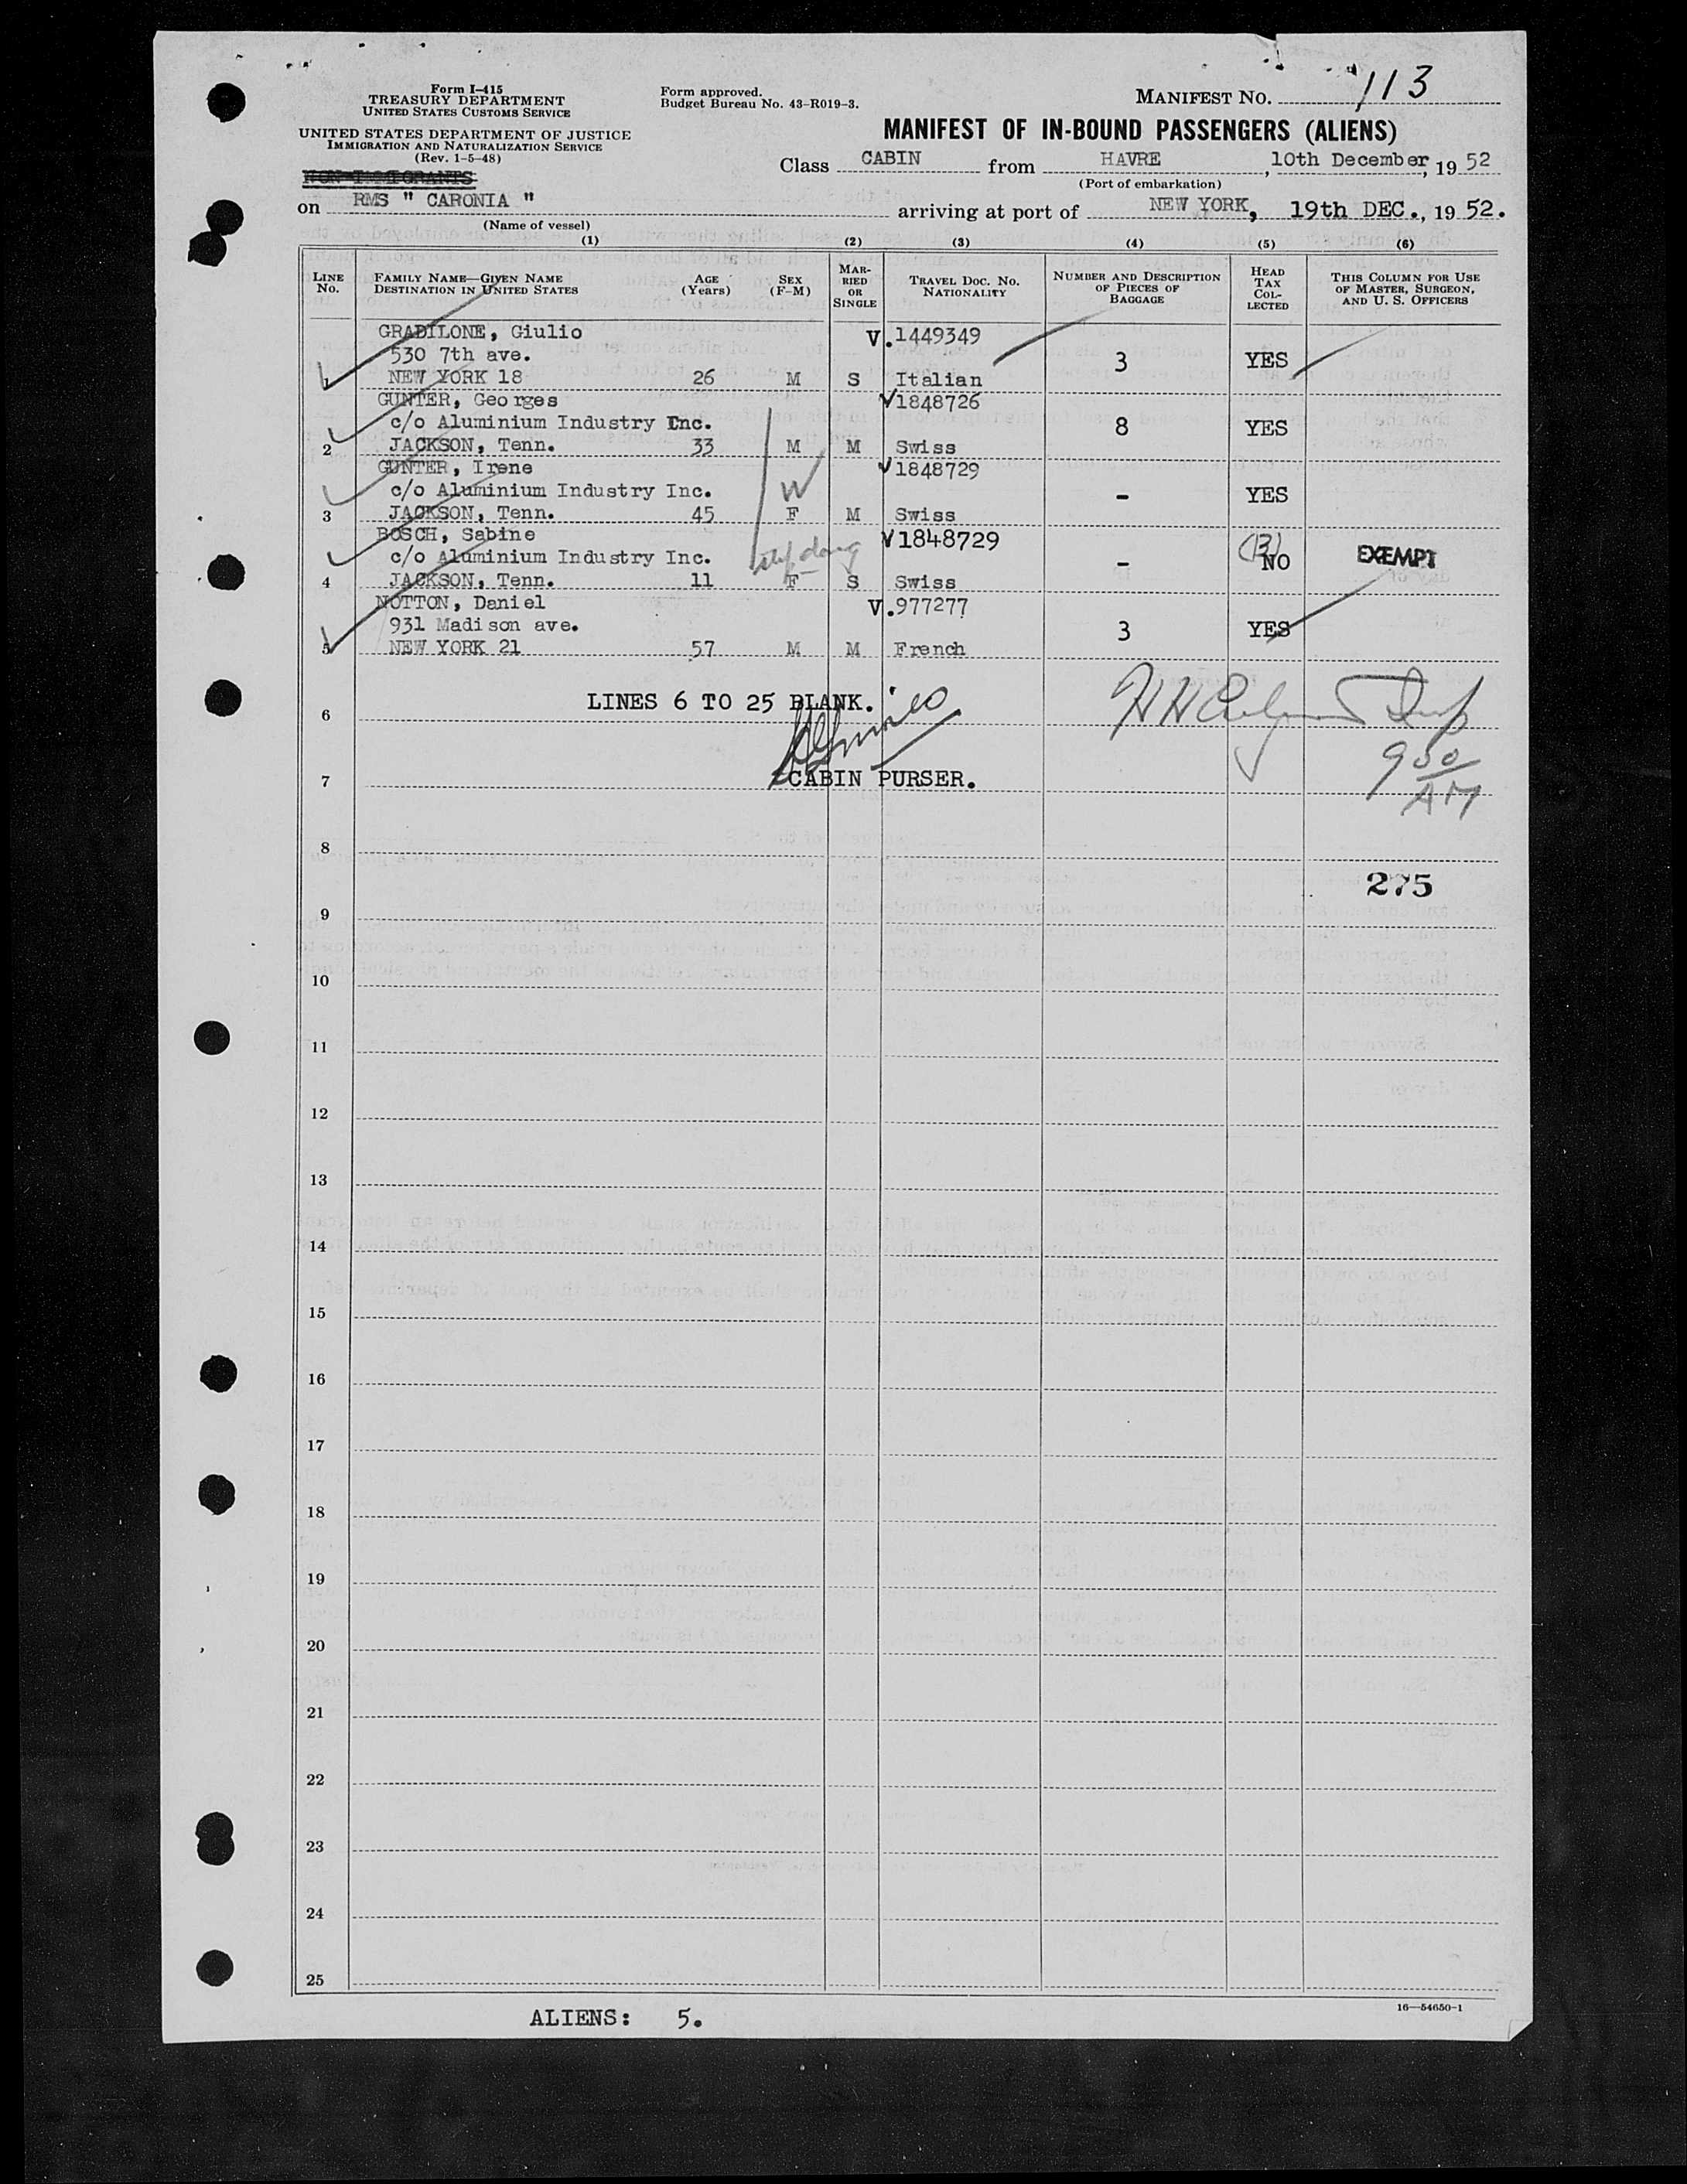 Form I-415
TREASURY DEPARTMENT
UNITED STATES CUSTOMS SERVICE
UNITED STATES DEPARTMENT OF JUSTICE
IMMIGRATION AND NATURALIZATION SERVICE
(Rev. 1-5-48)
NON-IMMIGRANTS
Form approved.
Budget Bureau No. 43-R019-3.
MANIFEST NO. 113
MANIFEST OF IN-BOUND PASSENGERS (ALIENS)
Class CABIN from HAVRE, 10th December, 19 52
(Port of embarkation)
on RMS " CARONIA " arriving at port of NEW YORK, 19th DEC., 19 52.
(Name of vessel)
(1) (2) (3) (4) (5) (6)
LINE NO. FAMILY NAME—GIVEN NAME DESTINATION IN UNITED STATES AGE (Years) SEX (F-M) MARRIED OR SINGLE TRAVEL DOC. NO. NATIONALITY NUMBER AND DESCRIPTION OF PIECES OF BAGGAGE HEAD TAX COLLECTED THIS COLUMN FOR USE OF MASTER, SURGEON, AND U. S. OFFICERS
GRADILONE, Giulio V.1449349
530 7th ave. 3 YES
1 NEW YORK 18 26 M S Italian
GUNTER, Georges V1848726
c/o Aluminium Industry Inc. 8 YES
2 JACKSON, Tenn. 33 M M Swiss
GUNTER, Irene V1848729
c/o Aluminium Industry Inc. W - YES
3 JACKSON, Tenn. 45 F M Swiss
BOSCH, Sabine V1848729
c/o Aluminium Industry Inc. step daug - (13) NO EXEMPT
4 JACKSON, Tenn. 11 F S Swiss
NOTTON, Daniel V.977277
931 Madison ave. 3 YES
5 NEW YORK 21 57 M M French
LINES 6 TO 25 BLANK.
6
7 CABIN PURSER.
9 30 AM
8
275
9
10
11
12
13
14
15
16
17
18
19
20
21
22
23
24
25
16—54650-1
ALIENS: 5.